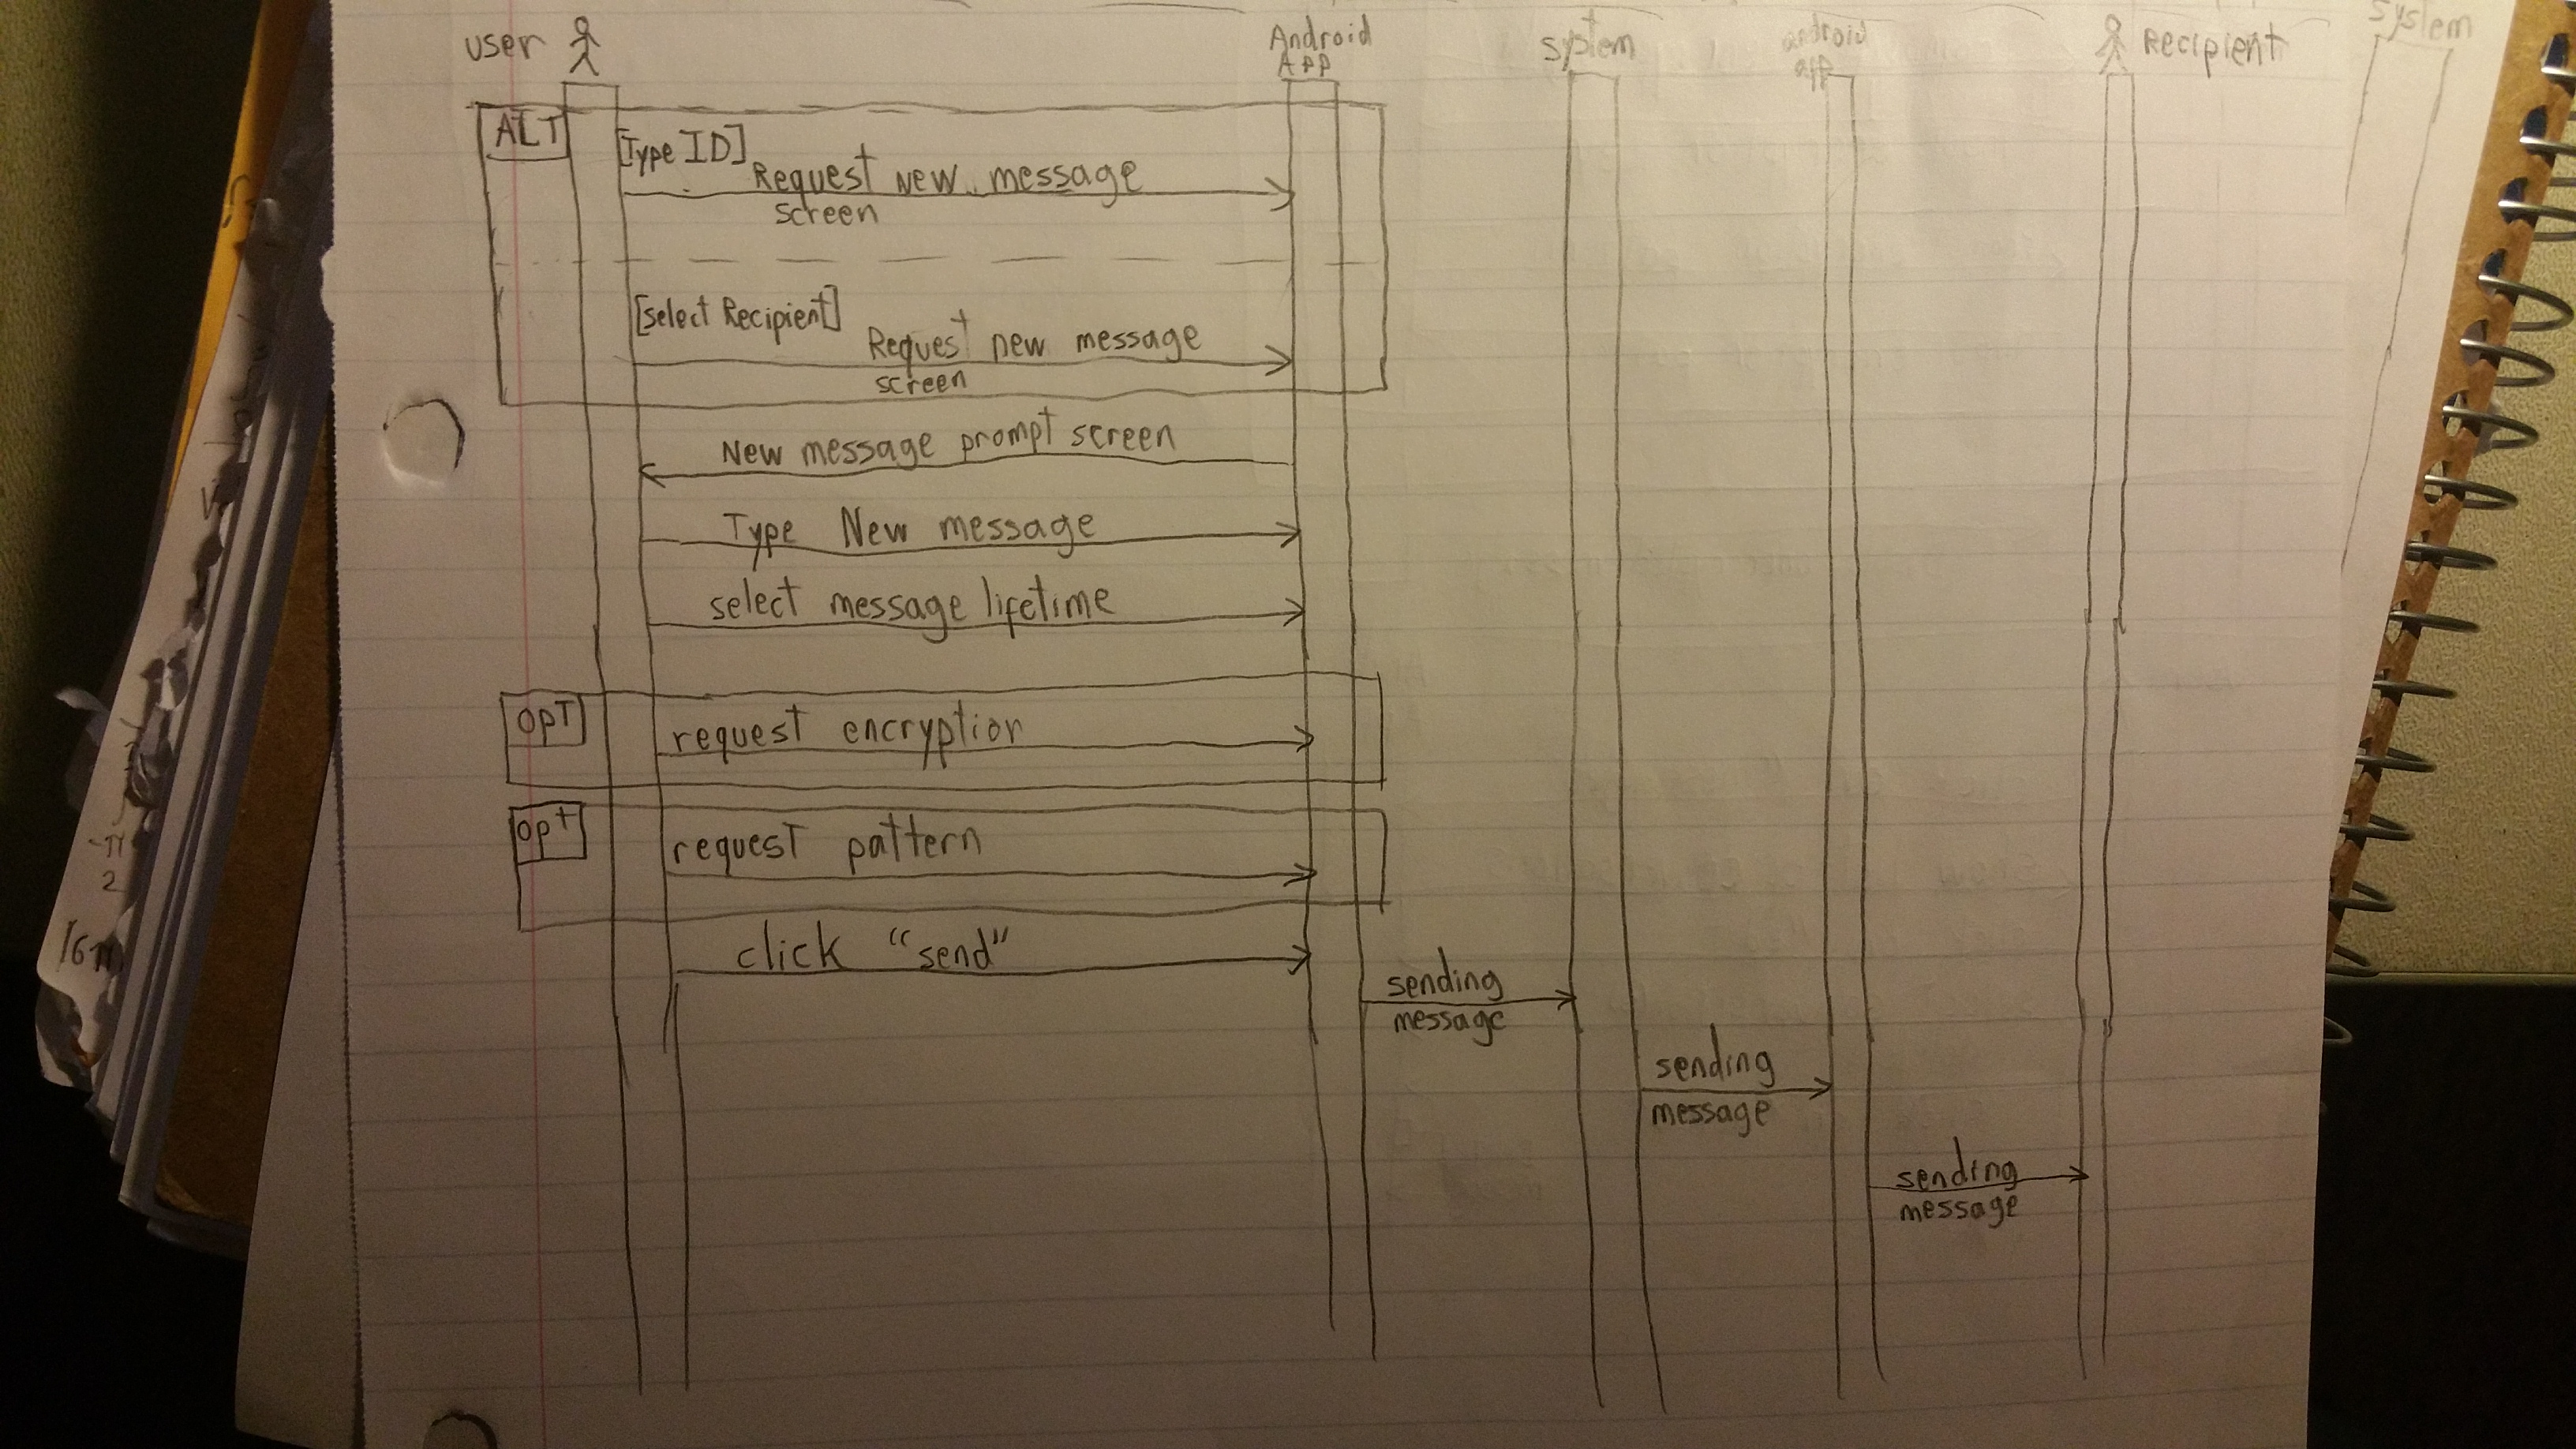 user
Android
App
system
android
app
Recipient
system
ALT
[Type ID]
Request new message
screen
[select Recipient]
Request new message
screen
New message prompt screen
Type New message
select message lifetime
OPT
request encryption
opt
request pattern
click "send"
sending
message
sending
message
sending
message
2